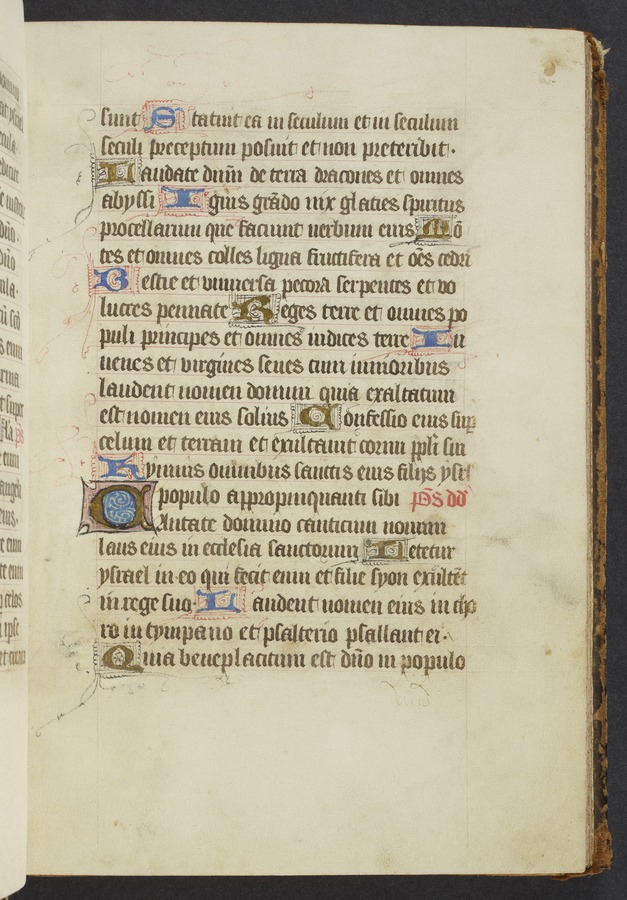 sunt Statuit ea in seculum et in seculum
seculi preceptum posuit et non preteribit.
Laudate dnm de terra dracones et omnes
abyssi Ignis grādo nix glacies spiritus
procellarum que faciunt verbum eius Mō
tes et omnes colles ligna fructifera et oēs cedri
Bestie et universa pecora serpentes et vo
lucres pennate Reges terre et omnes po
puli principes et omnes iudices terre Iu
venes et virgines senes cum iunioribus
laudent nomen domini quia exaltatum
est nomen eius solius Confessio eius sup
celum et terram et exultavit cornu ppli sui
Ymnus omnibus sanctis eius filijs ysrl
populo appropinquanti sibi ps dd
Cantate domino canticum novum
laus eius in ecclesia sanctorum Letetur
ysrael in eo qui fecit eum et filie syon exultēt
in rege suo. Laudent nomen eius in cho
ro in tympano et psalterio psallant ei.
Quia beneplacitum est dno in populo